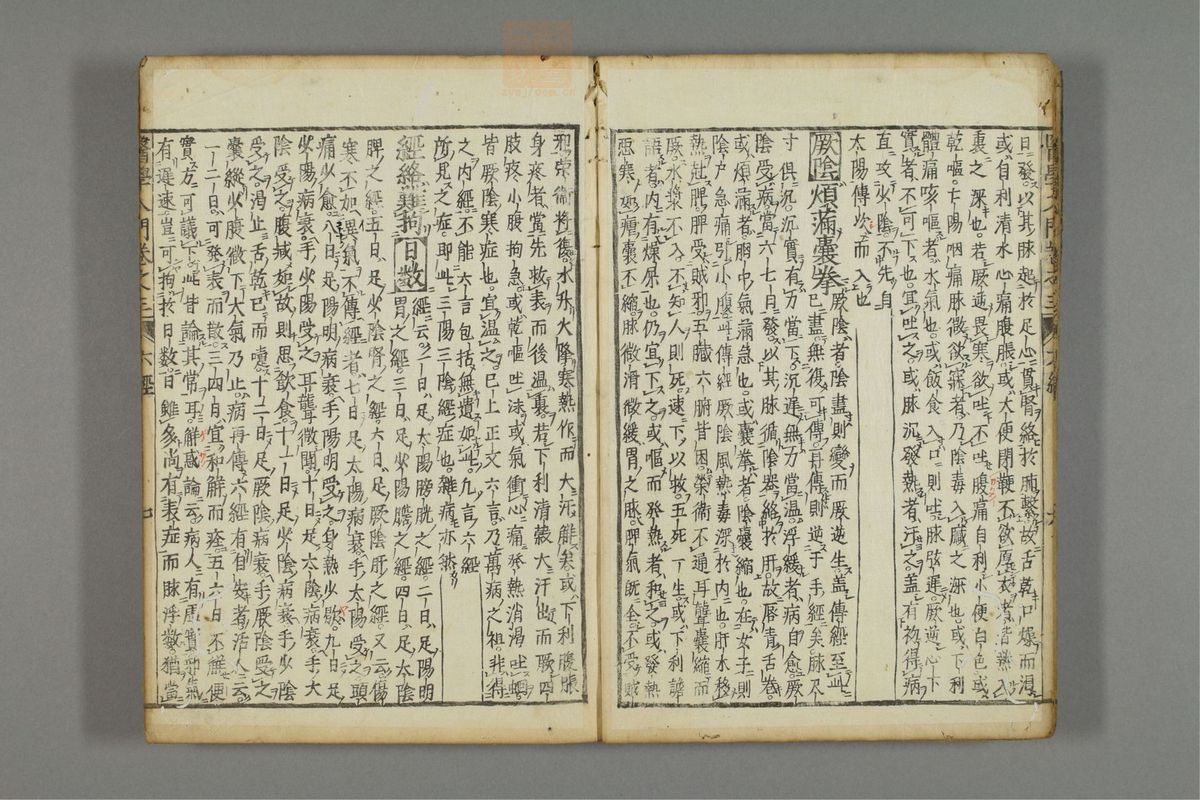 日發以其脉起於足心貫腎絡於肺繫故舌乾口燥而渴
或自利清水心痛腹脹或大便閉鞕不欲厚衣者皆熱入
裏之深也若厥逆畏寒欲吐不吐腹痛自利小便白色或
乾嘔亡陽咽痛脉微欲寐者乃陰毒入臟之深也或下利
體痛咳嘔者水氣也或飯食入口則吐脉弦遲厥逆心下
實者不可下也宜吐之或脉沉發熱者汗之盖有初得病
直攻陰不先自
太陽傳次而入也
厥陰煩滿囊拳
厥陰者陰盡則變而厥逆生盖傳經至此
已盡無復可傳再傳則逆于手經矣脉尺
寸俱沉沉實有力當下沉遲無力當温浮緩者病自愈厥
陰受病當六七日發以其脉循陰器絡於肝故唇青舌卷
或煩滿者胷中氣滿急也或囊拳者陰囊縮也在女子則
陰戶急痛引小腹此傳經厥陰風熱毒深於内也肝木移
熱壯脾脾受賊邪五臟六腑皆困榮衛不通耳聾囊縮而
厥水漿不入不知人則死速下以救五死一生或下利譫
語者内有燥屎也仍宜下之或嘔而發熱者和之或發熱
惡寒如瘧囊不縮脉微浮微緩胃之脉脾氣既全不受賊
邪榮衛將復水升火降寒熱作而大汗解矣或下利腹脹
身疼者當先救表而後温裏若下利清穀大汗出而厥四
肢疼小腹拘急或乾嘔吐沫或氣衝心痛發熱消渴吐
皆厥陰寒症也宜温之已上正文六言乃萬病之祖非得
之内經不能六言包括無遺如此九言六經
所見之症即此三陽三陰經症也雜病亦然
經絡難拘日数
經云一日足太陽膀胱之經二日足陽明
胃之經三日足少陽膽之經四日足太陰
脾之經五日足少陰腎之經六日足厥陰肝之經又云傷
寒不加異氣不傳經者七日足太陽病衰手太陽受之頭
痛少愈八日足陽明病衰手陽明受之身熱少歇九日足
少陽病衰手少陽受之耳聾微聞十日足太陰病衰手太
陰受之腹减如故則思飲食十一日足少陰病衰手少陰
受之渴止舌乾已而嚏十二日足厥陰病衰手厥陰受之
囊縱少腹微下大氣乃止病再傳六經有自安者活人云
一二日可發表而散三四日宜和解而痊五六日不解便
實方可議下此皆論其常耳觧惑論云病人有
有遲速豈可拘於日数日雖多尚有表症而脉浮数猶當
醫學入門卷之三
六經
七